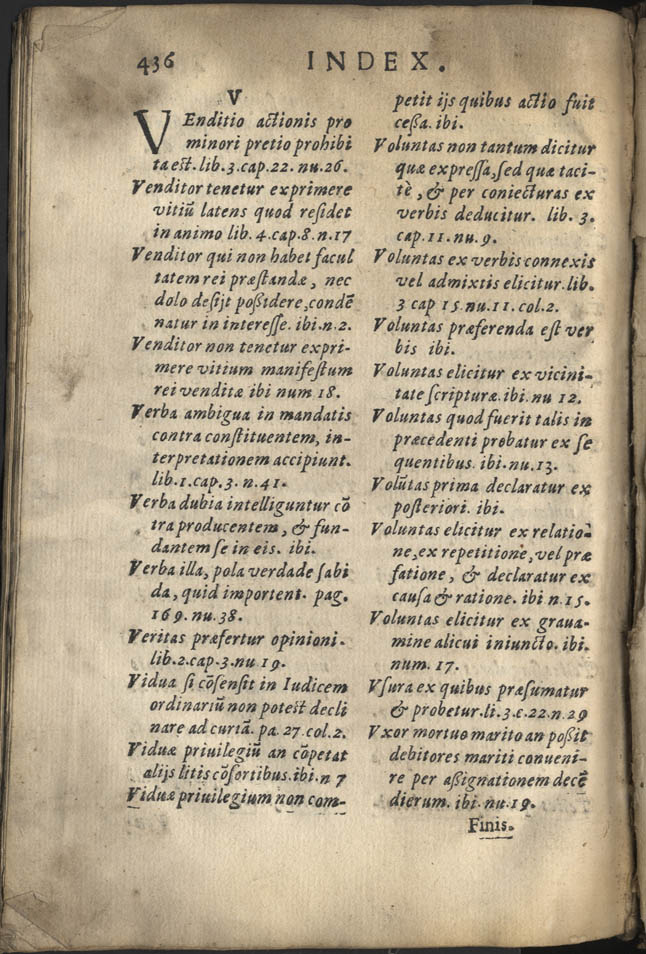 436 INDEX.
V
VEnditio actionis pro
minori pretio prohibi
ta est. lib. 3. cap. 22. nu. 26.
Venditor tenetur exprimere
vitiū latens quod residet
in animo lib. 4. cap. 8. n. 17
Venditor qui non habet facul
tatem rei præstandæ, nec
dolo desijt poßidere, condē
natur in interesse. ibi. n. 2.
Venditor non tenetur expri-
mere vitium manifestum
rei venditæ ibi num 18.
Verba ambigua in mandatis
contra constituentem, in-
terpretationem accipiunt.
lib. 1. cap. 3. n. 41.
Verba dubia intelliguntur cō
tra producentem, & fun-
dantem se in eis. ibi.
Verba illa, pola verdade sabi
da, quid importent. pag.
169. nu. 38.
Veritas præfertur opinioni.
lib. 2. cap. 3. nu 19.
Vidua si cōsensit in Iudicem
ordinariū non potest decli
nare ad curiā. pa. 27. col. 2.
Viduæ priuilegiū an cōpetat
alijs litis cōsortibus. ibi. n 7
Viduæ priuilegium non com-
petit ijs quibus actio fuit
ceßa. ibi.
Voluntas non tantum dicitur
quæ expressa, sed quæ taci-
tè, & per coniecturas ex
verbis deducitur. lib. 3.
cap. 11. nu. 9.
Voluntas ex verbis connexis
vel admixtis elicitur. lib.
3 cap 15. nu. 11. col. 2.
Voluntas præferenda est ver
bis ibi.
Voluntas elicitur ex vicini-
tate scripturæ. ibi. nu 12.
Voluntas quod fuerit talis in
præcedenti probatur ex se
quentibus. ibi. nu. 13.
Volūtas prima declaratur ex
posteriori. ibi.
Voluntas elicitur ex relatio-
ne, ex repetitione, vel præ
fatione, & declaratur ex
causa & ratione. ibi n. 15.
Voluntas elicitur ex graua-
mine alicui iniuncto. ibi.
num. 17.
Vsura ex quibus præsumatur
& probetur. li. 3. c. 22. n. 29
Vxor mortuo marito an poßit
debitores mariti conueni-
re per aßignationem decē
dierum. ibi. nu. 19.
Finis.